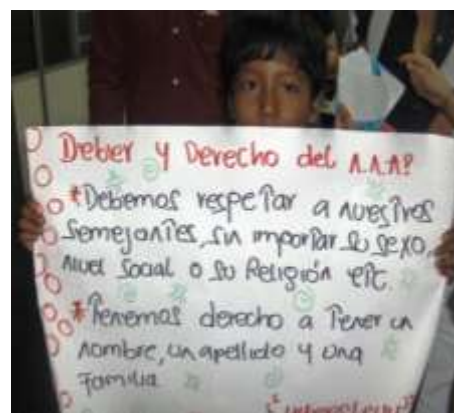 Deber y Derecho del A.A.A?
*Debemos respetar a nuestros
Semejantes, sin importar su sexo,
Nivel Social o su Religión etc.
*Tenemos derecho a Tener un
nombre, un apellido y una
Familia